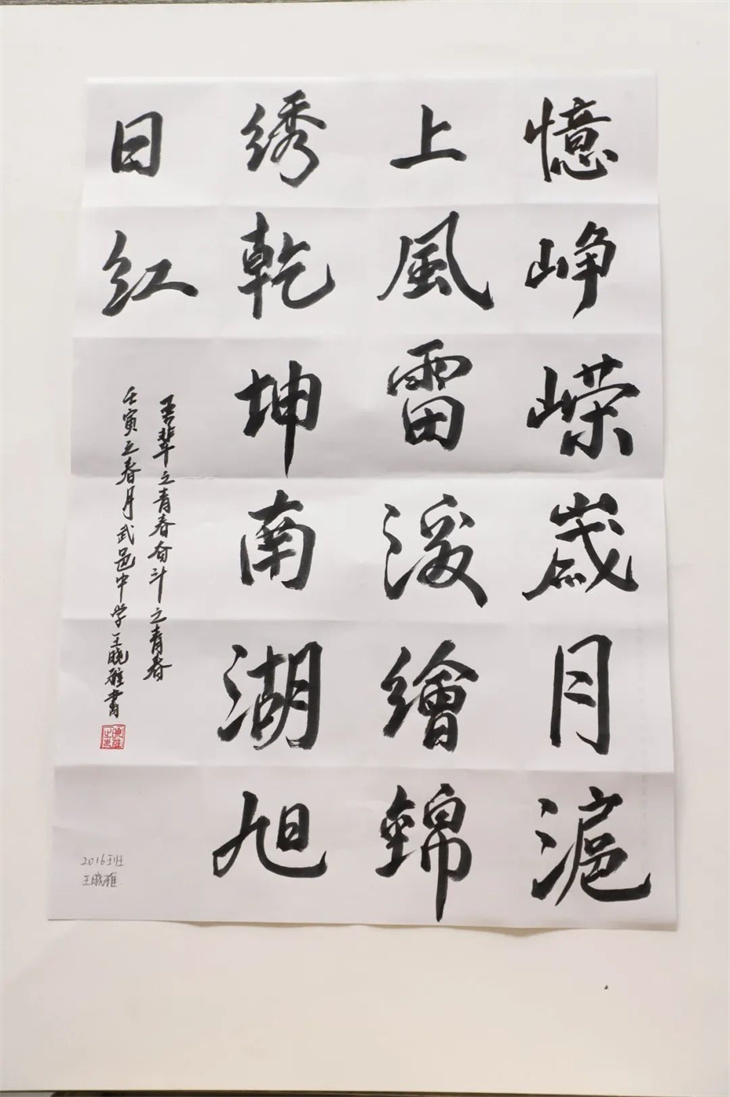 憶峥嵘歲月滬
上風雷湲繪錦
绣乾坤南湖旭
日红
吾辈之青春奋斗之青春
壬寅立春月武邑中学王晓雅書
2016班
王晓雅